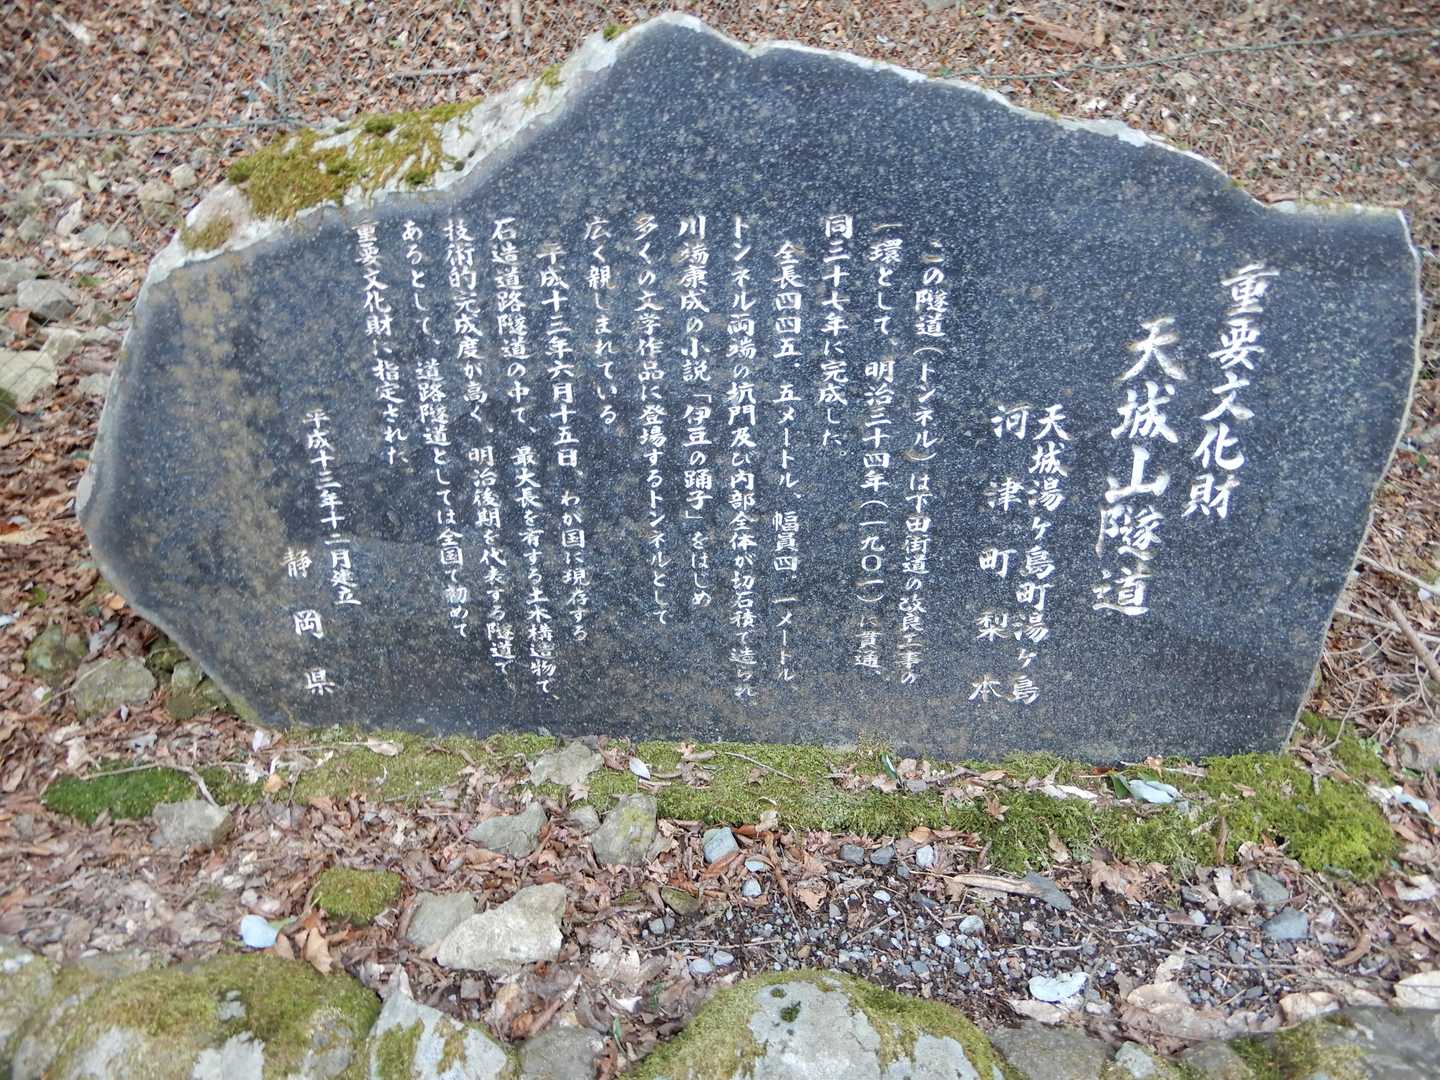 重要文化財
天城山隧道
天城湯ヶ島町湯ヶ島
河津町梨本
この隧道(トンネル)は下田街道の改良工事の
一環として、明治三十四年(一九〇一)に貫通、
同三十七年に完成した。
全長四四五．五メートル、幅員四．一メートル、
トンネル両端の坑門及び内部全体が切石積で造られ
川端康成の小説「伊豆の踊子」をはじめ
多くの文学作品に登場するトンネルとして
広く親しまれている。
平成十三年六月十五日、わが国に現存する
石造道路隧道の中で、最大長を有する土木構造物で、
技術的完成度が高く、明治後期を代表する隧道で
あるとして、道路隧道としては全国で初めて
重要文化財に指定された
平成十三年十二月建立
静岡県